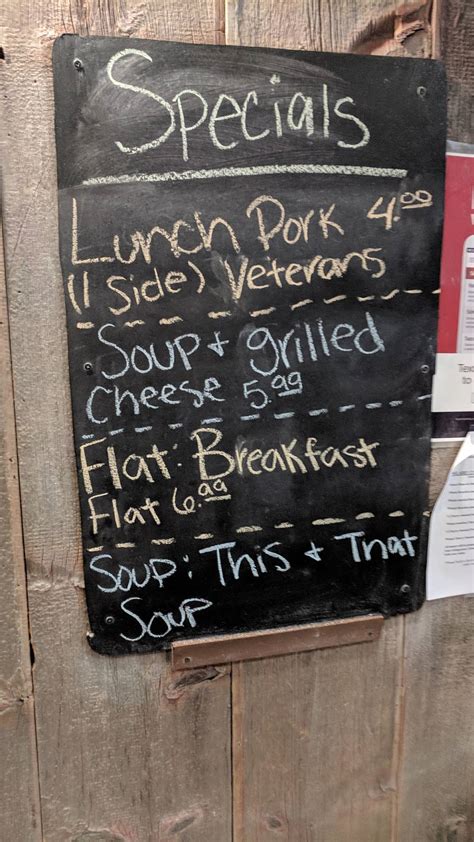 Specials
Lunch Pork 4.00
(1 Side) Veterans
Soup + grilled
Cheese 5.99
Flat: Breakfast
Flat 6.99
Soup: This + That
Soup